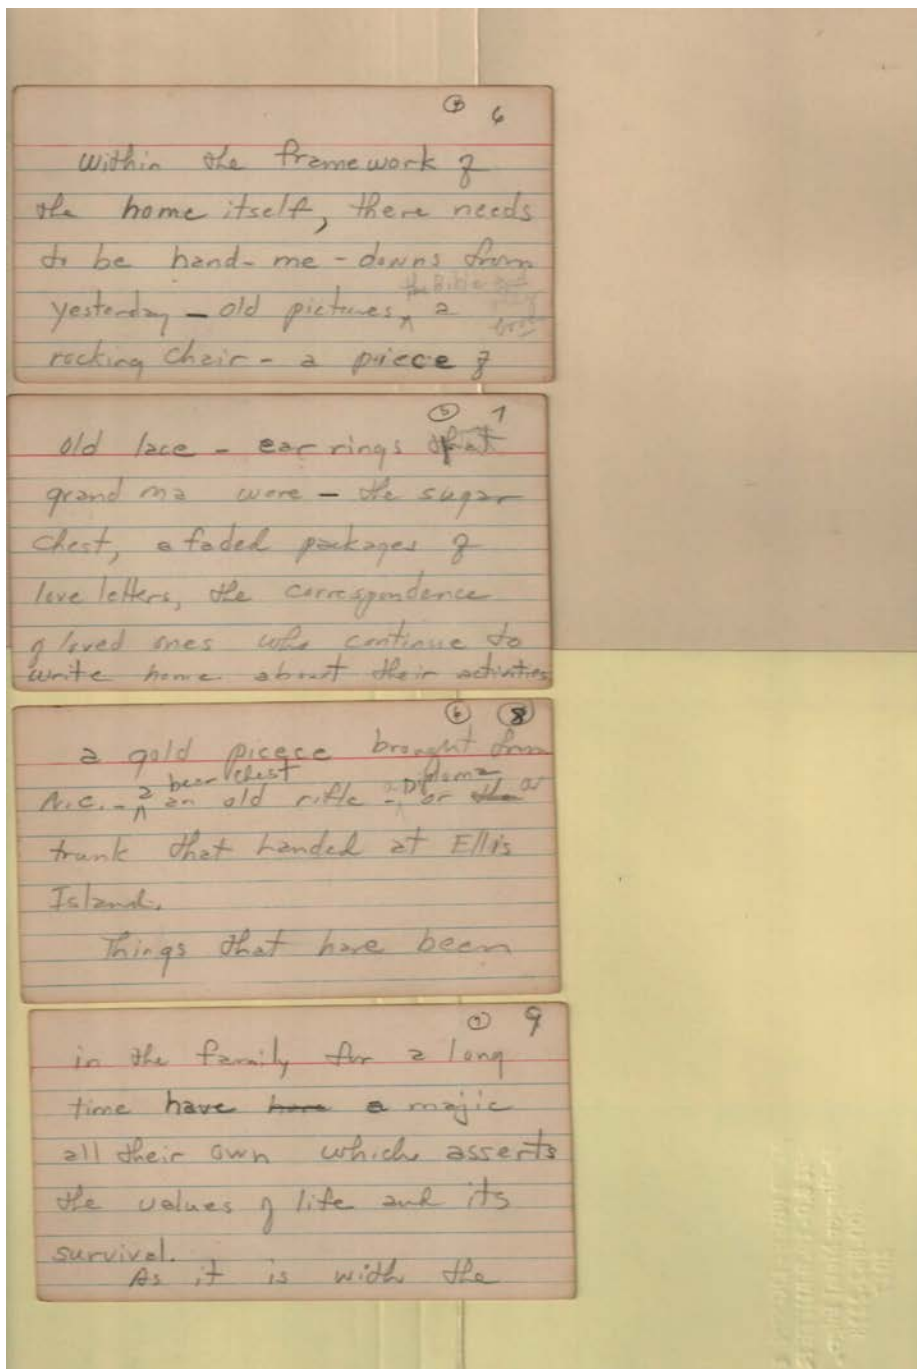 6
within the framework of
the home itself, there needs
to be hand-me-downs from
the Bible
yesterday - old pictures ^ a
rocking chair - a piece of
5 7
old lace - ear rings that
grand ma wore - the sugar
chest, a faded packages of
love letters, the correspondence
of loved ones who continue to
write home about their activities
6 8
a gold picece brought from
a bear chest Diploma
N.C. - ^ an old rifle - ^ or the or
trunk that handed at Ellis
Island.
Things that have been
7 9
in the family for a long
time have have a majic
all their own which asserts
the values of life and its
survival.
As it is with the